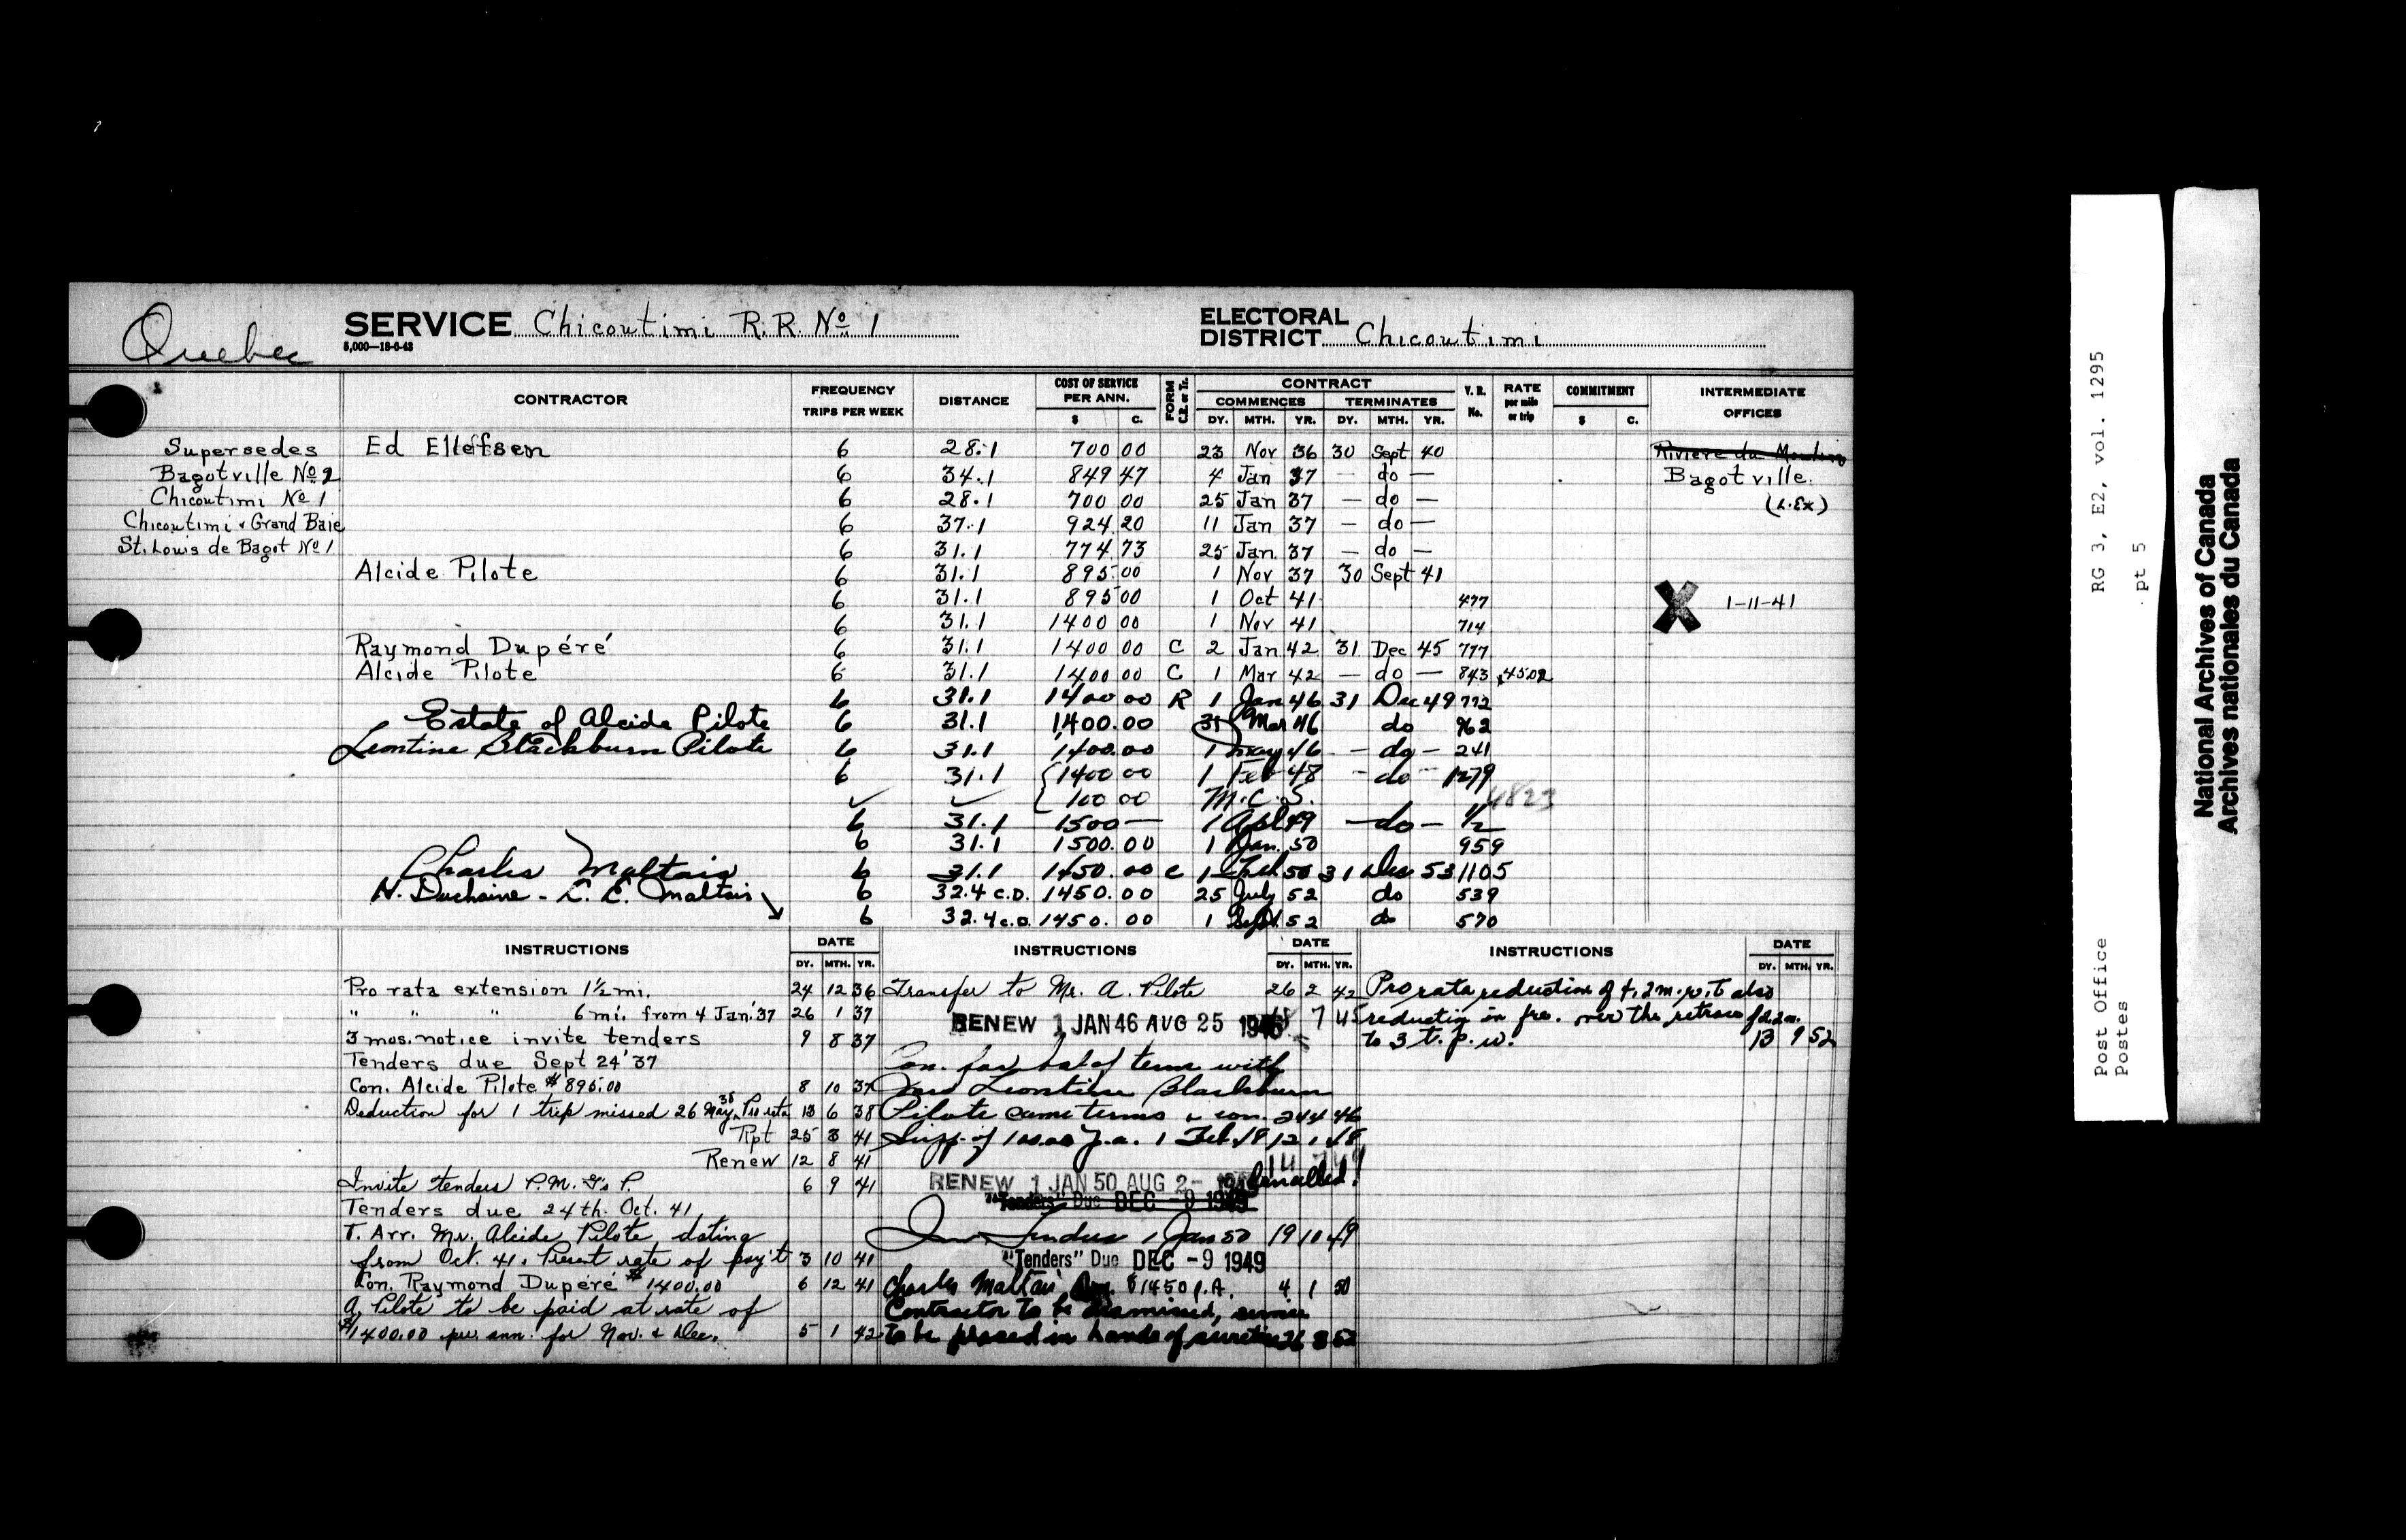 Quebec
SERVICE Chicoutimi R.R. No 1
5,000—18-6-43
ELECTORAL DISTRICT Chicoutimi
CONTRACTOR FREQUENCY TRIPS PER WEEK DISTANCE COST OF SERVICE PER ANN. $ C. FORM C.R. or Tr. CONTRACT COMMENCES DY. MTH. YR. TERMINATES DY. MTH. YR. V.R. No. RATE per mile or trip COMMITMENT $ C. INTERMEDIATE OFFICES
Supersedes Ed Ellefsen 6 28.1 700 00 23 Nov 36 30 Sept 40 Riviere du Moulin
Bagotville No 2 6 34.1 849 47 4 Jan 37 — do — Bagotville
Chicoutimi No 1 6 28.1 700 00 25 Jan 37 — do — (L.Ex)
Chicoutimi & Grand Baie 6 37.1 924 20 11 Jan 37 — do —
St. Louis de Bagot No 1 6 31.1 774 73 25 Jan 37 — do —
Alcide Pilote 6 31.1 895.00 1 Nov 37 30 Sept 41
6 31.1 895 00 1 Oct 41 477 X 1-11-41
6 31.1 1400 00 1 Nov 41 714
Raymond Dupéré 6 31.1 1400 00 C 2 Jan 42 31 Dec 45 777
Alcide Pilote 6 31.1 1400 00 C 1 Mar 42 — do — 843 .4502
6 31.1 1400 00 R 1 Jan 46 31 Dec 49 772
Estate of Alcide Pilote 6 31.1 1,400.00 31 Mar 46 do 962
Leontine Blackburn Pilote 6 31.1 1400.00 1 May 46 — do — 241
6 31.1 {1400 00 1 Feb 48 — do — 1279
✓ ✓ {100 00 M.C.S. 4823
6 31.1 1500 — 1 Apl 49 — do — 1/2
6 31.1 1500.00 1 Jan. 50 959
Charles Maltais 6 31.1 1450.00 C 1 Feb 50 31 Dec 53 1105
N. Duchaine - C. E. Maltais 6 32.4 c.D. 1450.00 25 July 52 do 539
6 32.4 c.D. 1450.00 1 Sept 52 do 570
INSTRUCTIONS DATE DY. MTH. YR. INSTRUCTIONS DATE DY. MTH. YR. INSTRUCTIONS DATE DY. MTH. YR.
Pro rata extension 1½ mi. 24 12 36
" " " 6 mi. from 4 Jan. '37 26 1 37
3 mos. notice invite tenders 9 8 37
Tenders due Sept 24 '37
Con. Alcide Pilote $895.00 8 10 37
Deduction for 1 trip missed 26 May 38 Pro rata 13 6 38
Rpt 25 3 41
Renew 12 8 41
Invite tenders P.M. G's P. 6 9 41
Tenders due 24th. Oct. 41
T. Arr. Mr. Alcide Pilote dating
from Oct. 41. Present rate of pay't 3 10 41
Con. Raymond Dupéré $1400.00 6 12 41
A. Pilote to be paid at rate of
$1400.00 per ann. for Nov. & Dec. 5 1 42
Transfer to Mr. A. Pilote 26 2 42
RENEW 1 JAN 46 AUG 25 1945 7 45
Con. for bal of term with
Mrs Leontine Blackburn
Pilote same terms & con. 24 4 46
Supp. of 100.00 p.a. 1 Feb. 48 12 1 48
RENEW 1 JAN 50 AUG 2- Cancelled!
"Tenders" Due DEC -9 1949
Inv Tenders 1 Jan 50 19 10 49
"Tenders" Due DEC -9 1949
Charles Maltais Con. $1450 p.A. 4 1 50
Contractor to be dismissed, service
to be placed in hands of sureties 26 8 52
Pro rata reduction of 4.2 m. p.t. also
reduction in fre. over the retrace of 2.2 m.
to 3 t.p.w. 13 9 52
Post Office RG 3, E2, vol. 1295
Postes pt 5
National Archives of Canada
Archives nationales du Canada